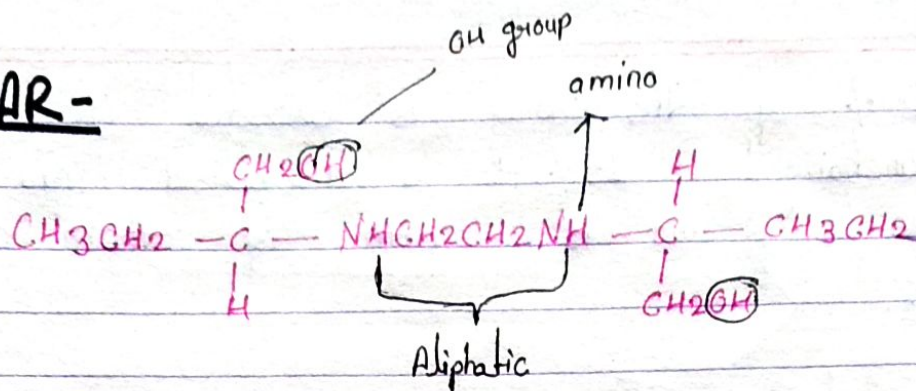 OH group
AR -
amino
CH2OH H
CH3CH2 — C — NHCH2CH2NH — C — CH3CH2
H CH2OH
Aliphatic